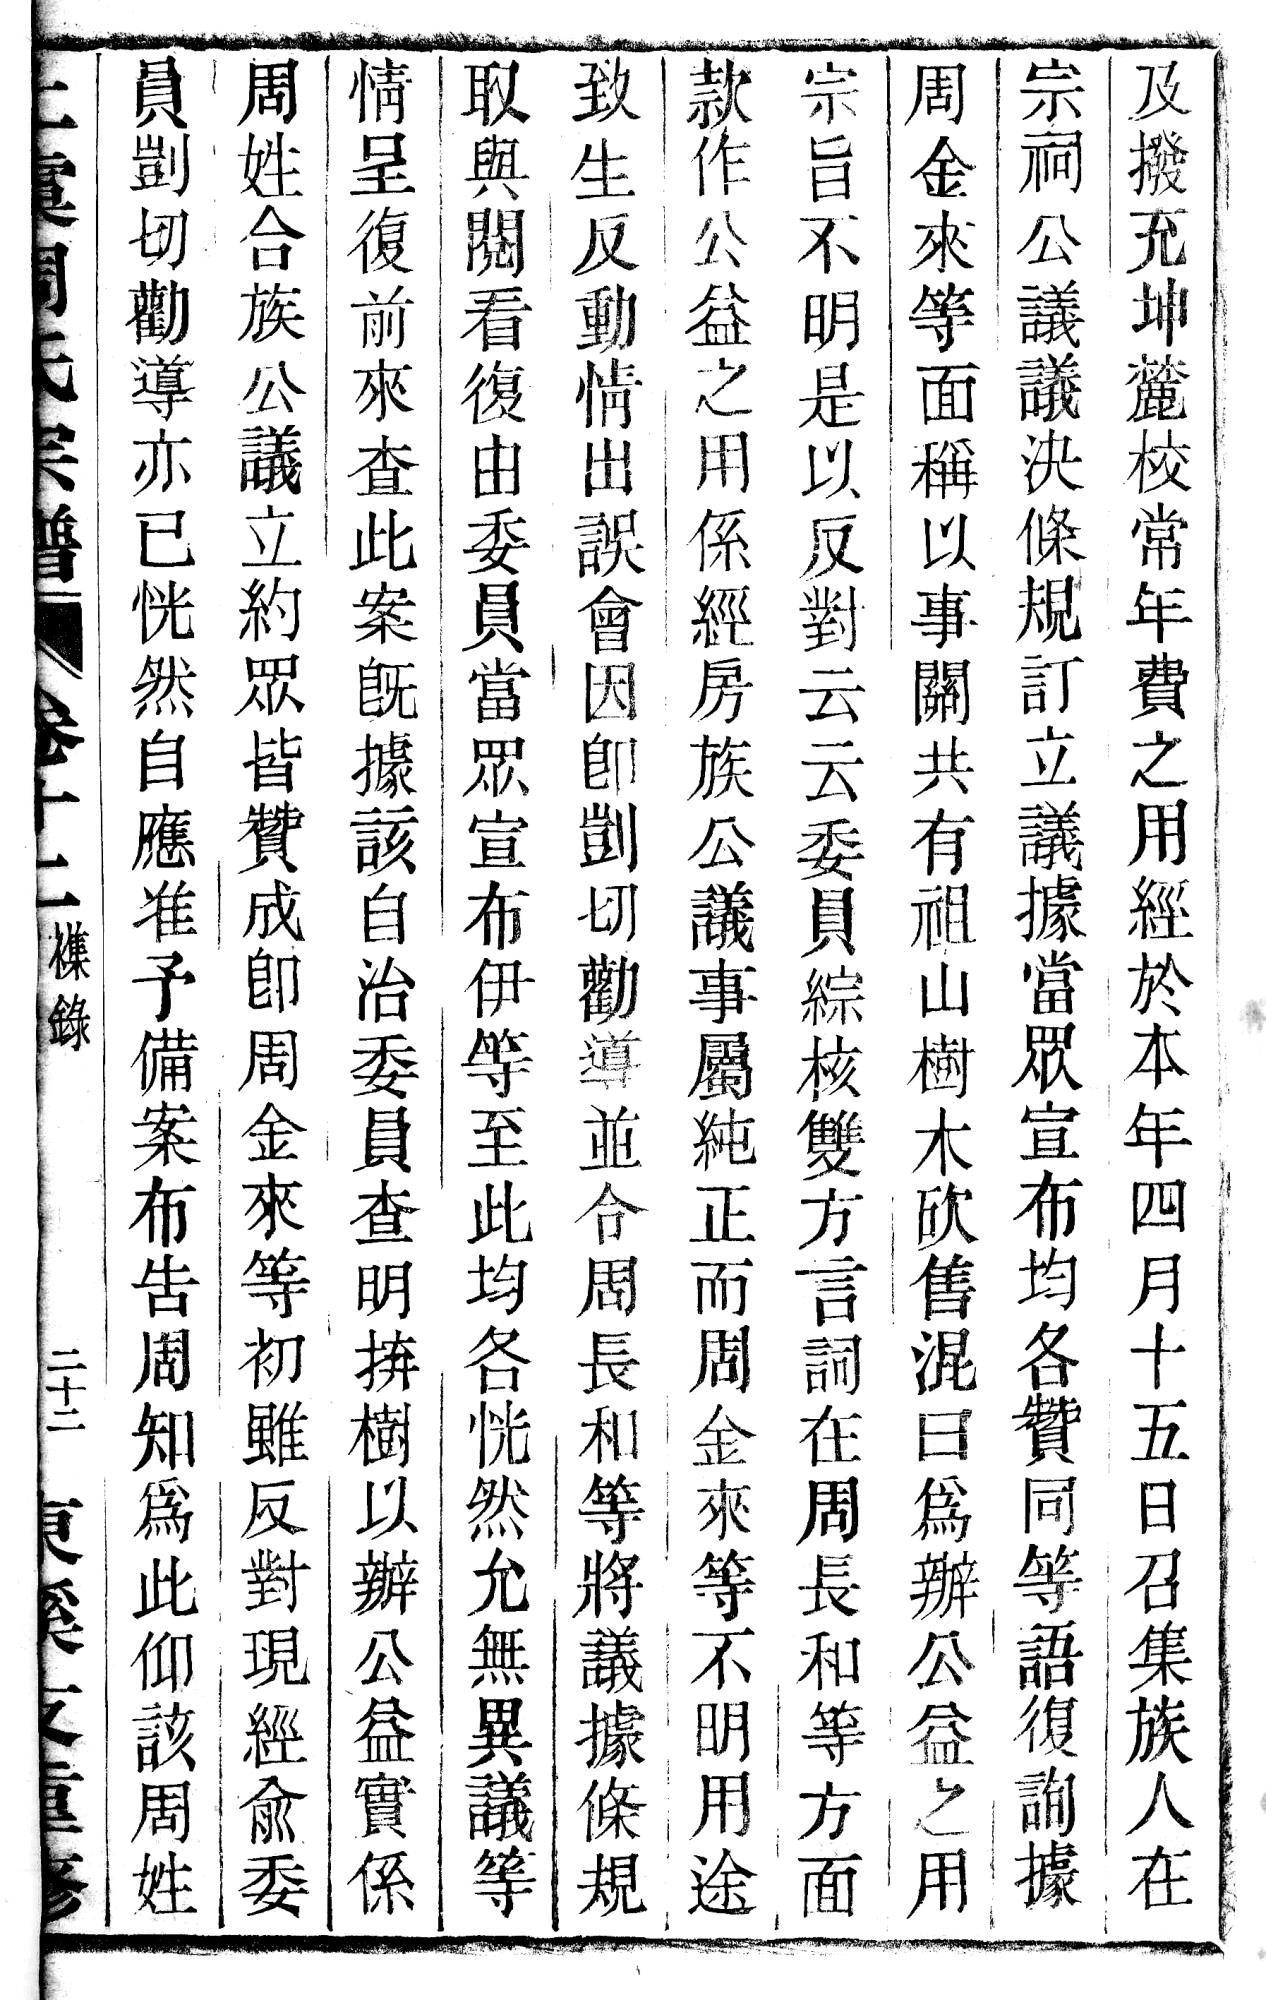 及撥充坤麓校常年費之用經於本年四月十五日召集族人在
宗祠公議議決條規訂立議據當眾宣布均各贊同等語復詢據
周金來等面稱以事關共有祖山樹木砍售混曰爲辦公益之用
宗旨不明是以反對云云委員綜核雙方言詞在周長和等方面
款作公益之用係經房族公議事屬純正而周金來等不明用途
致生反動情出誤會因卽剴切勸導並令周長和等將議據條規
取與閱看復由委員當眾宣布伊等至此均各恍然允無異議等
情呈復前來查此案旣據該自治委員查明拚樹以辦公益實係
周姓合族公議立約眾皆贊成卽周金來等初雖反對現經俞委
員剴切勸導亦已恍然自應准予備案布告周知爲此仰該周姓
上虞周氏宗譜 卷十二 襍錄 二十二 東溪支重修